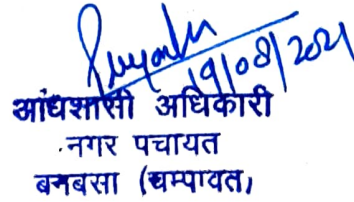 19/08/2021
आंधशासी अधिकारी
नगर पचायत
बनबसा (चम्पावत)